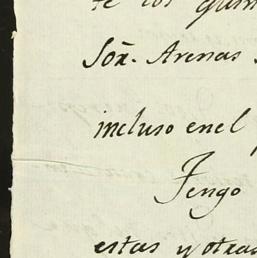 te los quin
Sõr. Arenas
incluso enel p
Tengo
estas y otras